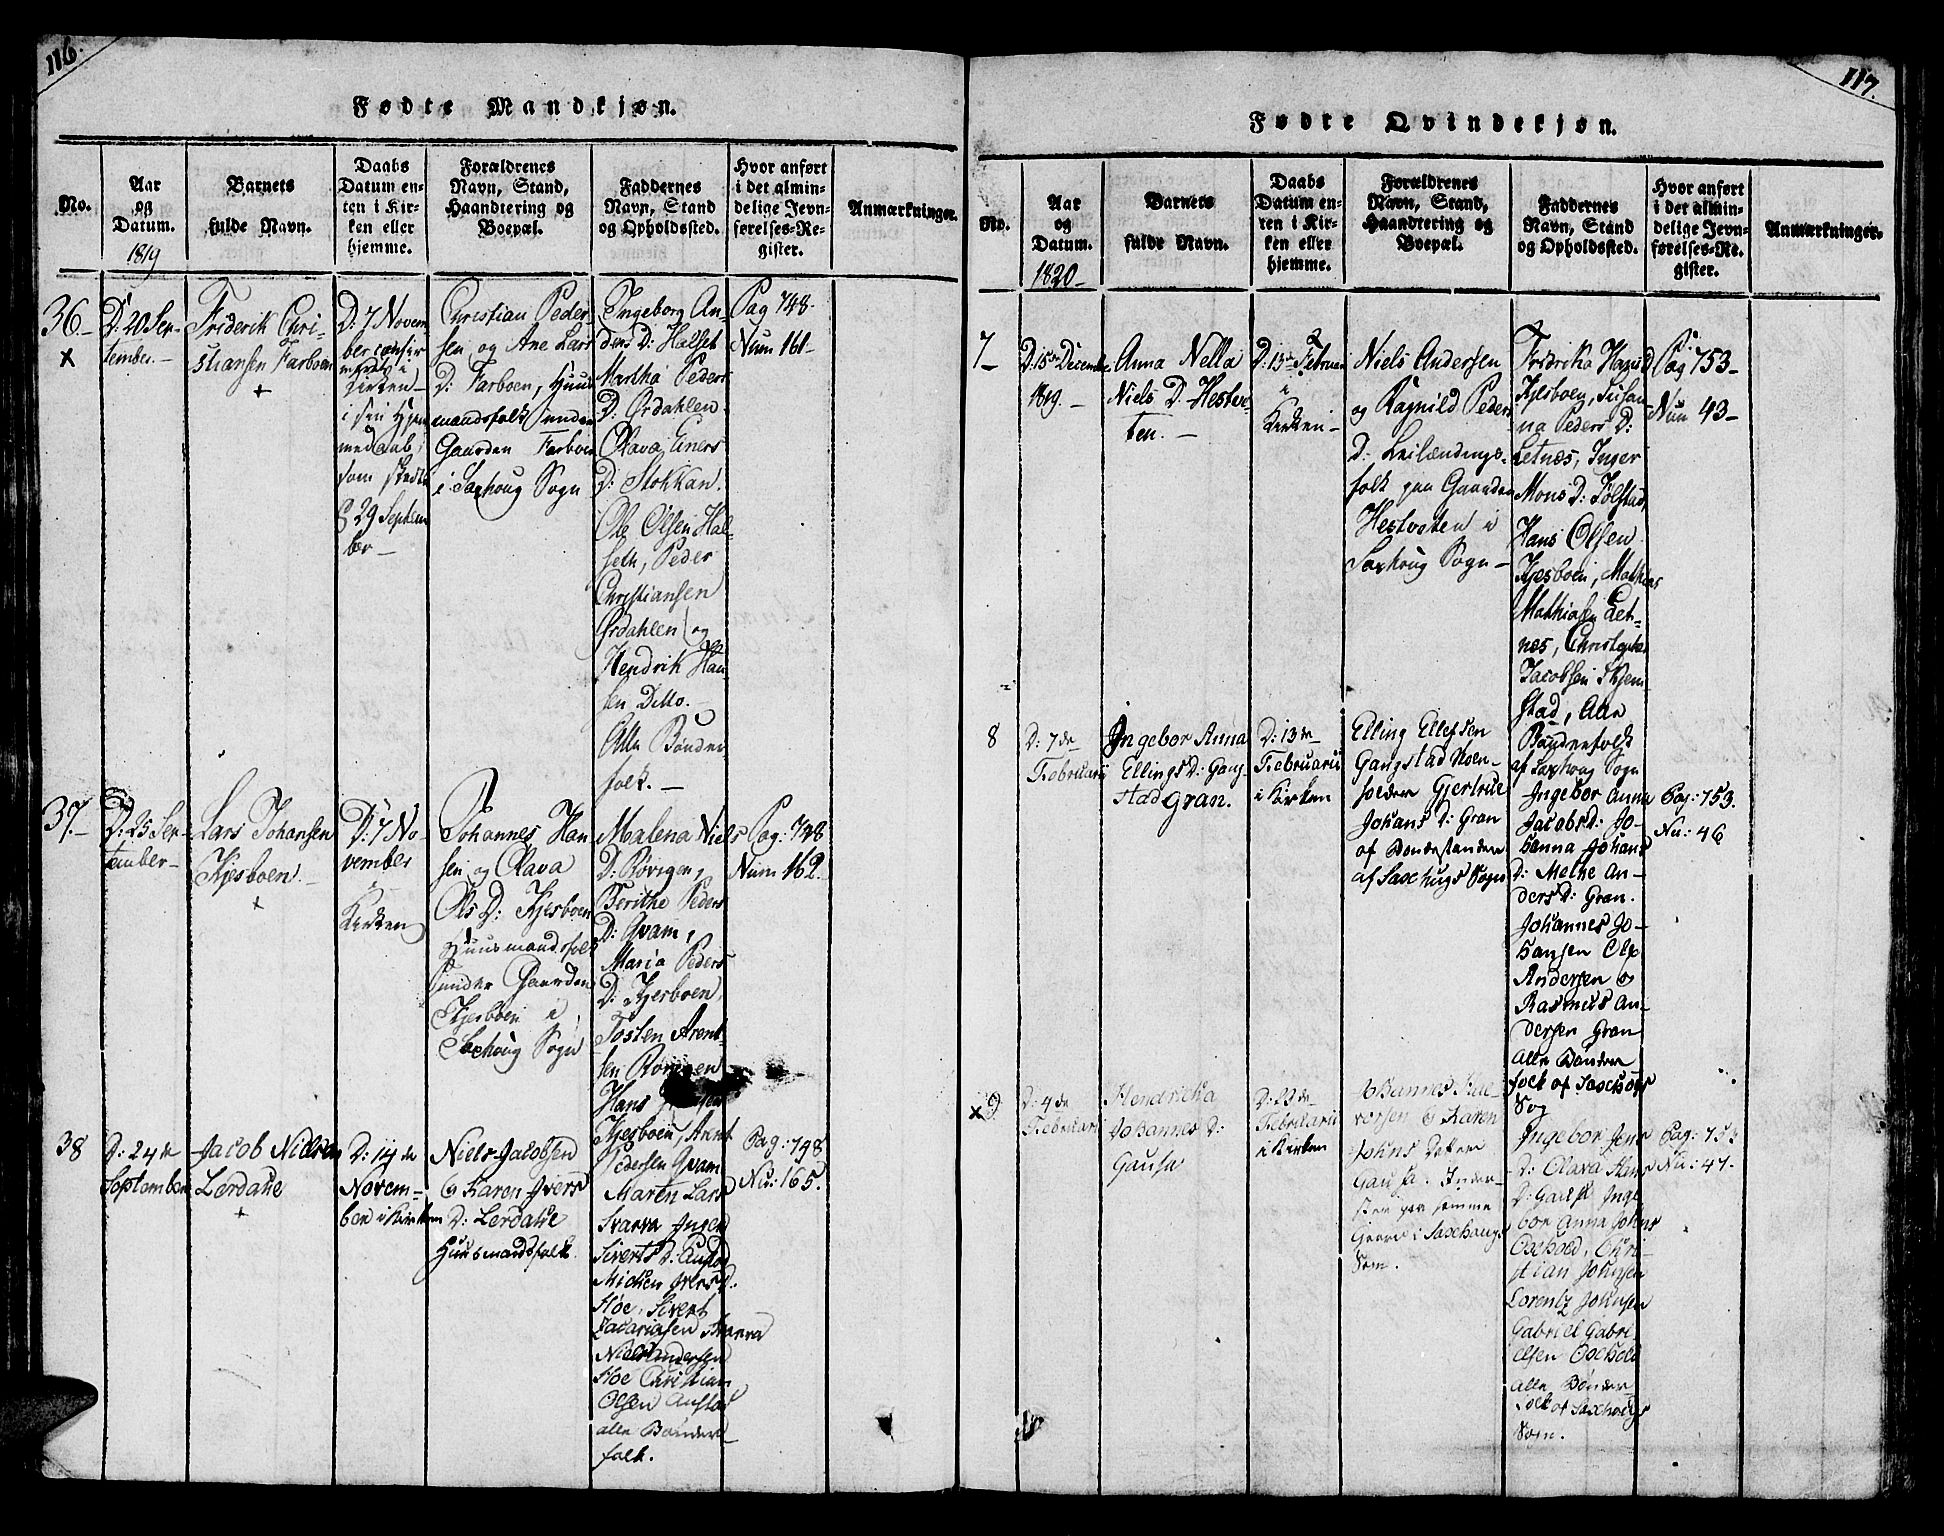 116.
Fødte Mandkjøn.
No.
Aar
og
Datum.
1819
Barnets
fulde Navn.
Daabs
Datum en-
ten i Kir-
ken eller
hjemme.
Forældrenes
Navn, Stand,
Haandtering og
Boepæl.
Faddernes
Navn, Stand
og Opholdssted.
Hvor anført
i det almin-
delige Jevn-
førelses-Re-
gister.
Anmærkninger.
36.
D: 20 Sep-
tember.
Friderik Chri-
stiansen Farboen
D: 7 Novem
ber confir
meret i
Kirken
i sin Hjem
medaab,
som skedte
d 29 Septem
ber
Christian Peder
sen og Ane Lars
D: Farboen, Huus
mandsfolk under
Gaarden Farboen
i Saxhoug Sogn
Ingeborg An-
ders D: Halset
Martha Peders
D: Ørdahlen
Olava Einers
D: Stokkan.
Ole Olsen Hal-
seth, Peder
Christiansen
Ørdahlen og
Hendrik Han
sen Ditto.
Alle Bønder
folk.
Pag 748-
Num 161-
37.
D: 25 Sep-
tember
Lars Johansen
Kjesboen.
D: 7 No-
vember
i
Kirken
Johannes Han
sen og Olava
Ols D: Kjesboen
Huusmandsfolk
under Gaarden
Kjesboen i
Saxhoug Sogn
Malena Niels
D: Rövigen,
Berithe Peders
D: Qvam,
Maria Peders
D: Kjesboen,
Tosten Arent
sen Rövigen
Hans
Kjesboen, Arnt
Pedersen Qvam
Pag: 748
Num 162.
38
D: 24de
September
Jacob Nielsen
Lerdahe
D: 14de
Novem-
ber i Kirken
Niels Jacobsen
og Karen Ivers
D: Lerdahe
Huusmandsfolk.
Marten Lars
Svarva Inger
Siverts D: Austad
Michen Ivers D:
Høe, Sivert
Zacariasen Svarva
Niels Andersen
Høe Christian
Olsen Austad
alle Bønder
folk.
Pag: 748
Nu: 165.
117.
Fødte Qvindekjøn.
No.
Aar
og
Datum.
1820
Barnets
fulde Navn.
Daabs
Datum en-
ten i Kir-
ken eller
hjemme.
Forældrenes
Navn, Stand,
Haandtering og
Boepæl.
Faddernes
Navn, Stand
og Opholdssted.
Hvor anført
i det almin-
delige Jevn-
førelses-Re-
gister.
Anmærkninger.
7
D: 15 December
1819.
Anna Nella
Niels D: Hestve-
ten.
D: 13 Februar
i
Kirken
Niels Andersen
og Ragnild Peders
D: Leilændings-
folk paa Gaarden
Hestveten i
Saxhoug Sogn
Fridrika Hans D
Kjesboen, Susan
na Peders D:
Letnæs, Inger
Mons D: Tølstad,
Hans Olsen
Kjesboen, Mathias
Mathiasen Let-
næs, Christopher
Jacobsen Skjem
stad, Alle
Bønderfolk
af Saxhoug Sogn
Pag 753-
Num 43-
8
D: 7de
Februarii
Ingebor Anna
Ellings D: Gang-
stad Gran.
D: 13de
Februarii
i Kirken
Elling Ellefsen
Gangstad Noen-
folden Gjertrue
Johans D: Gran
af Bondestanden
af Saxhugs Sogn
Ingebor Anna
Jacobs D: Jo-
hanna Johans
D: Methe An-
ders D: Gran.
Johannes Jo-
hansen Ole
Andersen og
Rasmus An-
dersen Gran
Alle Bønder
folk af Saxhoug
Sog
Pag: 753.
Nu: 46
9
D: 4de
Februari
Hendricha
Johannes D:
Gausa
D: 22de
Februarii
i Kirken
Johns Datter
Gausa. Inder-
ster paa samme
Gaard i Saxhaugs
Sogn.
Ingebor Jens
D: Olava Hans
D: Gausa Inge
bor Anna Johns
Oxhold, Chri-
stian Johnsen
Lorentz Johnsen
Gabriel Gabri-
elsen Oxhold
Alle Bønder
folk af Saxhougs
Sogn.
Pag: 753
Nu: 47.